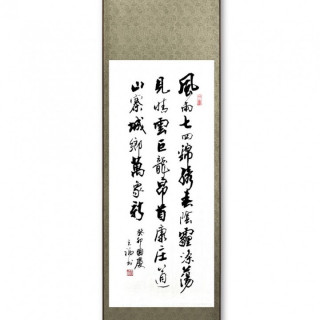 風雨七四錦綉春陰霾滌蕩
見晴雲巨龍昂首康庄道
山寨城鄉萬家新
癸卯國慶